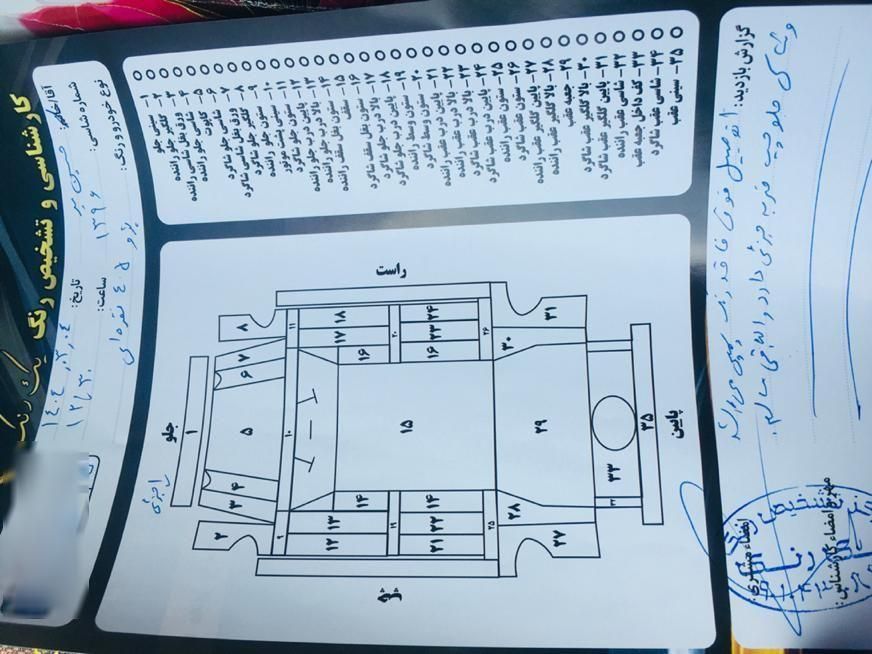 کارشناسی و تشخیص رنگ یک رنگ
آقا/خانم:
تاریخ: ۱۴۰۴,۳,۰۴
شماره شاسی: ۱۳۹۶
ساعت: ۱۲/۳۰
نوع خودرو و رنگ: پژو ۴۰۵ نقره‌ای
۱- سینی جلو
۲- گلگیر جلو راننده
۳- ورق بغل شاسی راننده
۴- شاسی جلو راننده
۵- کاپوت
۶- شاسی جلو شاگرد
۷- ورق بغل شاسی شاگرد
۸- گلگیر جلو شاگرد
۹- ستون جلو راننده
۱۰- سینی پشت موتور
۱۱- ستون جلو شاگرد
۱۲- پایین درب جلو راننده
۱۳- بالا درب جلو راننده
۱۴- ستون بغل سقف راننده
۱۵- سقف
۱۶- ستون بغل سقف شاگرد
۱۷- بالا درب جلو شاگرد
۱۸- پایین درب جلو شاگرد
۱۹- ستون وسط راننده
۲۰- ستون وسط شاگرد
۲۱- پایین درب عقب راننده
۲۲- بالا درب عقب راننده
۲۳- بالا درب عقب شاگرد
۲۴- پایین درب عقب شاگرد
۲۵- ستون عقب راننده
۲۶- ستون عقب شاگرد
۲۷- پایین گلگیر عقب راننده
۲۸- بالا گلگیر عقب راننده
۲۹- جعبه عقب
۳۰- بالا گلگیر عقب شاگرد
۳۱- پایین گلگیر عقب شاگرد
۳۲- شاسی عقب راننده
۳۳- کف داخل جعبه عقب
۳۴- شاسی عقب شاگرد
۳۵- سینی عقب
راست
۸ ۱۱ ۱۸ ۲۴ ۳۱
۱۷ ۲۰ ۲۳ ۲۶
۷ ۱۶ ۱۶ ۳۰
۶
جلو ۱ ۵ ۱۰ ۱۵ ۲۹ ۳۵ پایین
۴ ۳۳
جزئی ۳ ۱۴ ۱۴ ۲۸ ۳۲
۱۳ ۱۹ ۲۲ ۲۵
۲ ۹ ۱۲ ۲۱ ۲۷
چپ
گزارش بازدید:
فوق فاقد رنگ می‌باشد
جلو چپ ضربه جزئی دارد و الباقی سالم.
مهر و امضاء کارشناس:
امضاء مشتری: